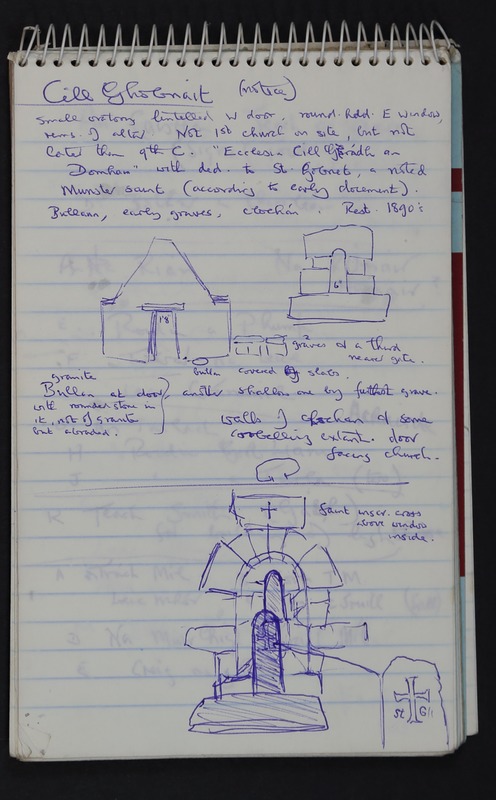 Cill Ghobnait (notice)
Small oratory lintelled W door, round-hdd. E window,
rems. of altar. Not 1st church on site, but not
later than 9th C. "Ecclesia Cill Gobrádh an
Domhan" with ded. to St. Gobnet, a noted
Munster saint (according to early document).
Bullaun, early graves, clochán. Rest. 1890's
1'8
6"
graves & a third
near gate.
bulln covered by slabs.
granite
Bullan at door
with rounder stone in
it, not of granite
but abraded.
another shallow one by furthest grave.
walls of clochan & some
corbelling extant. door
facing church.
faint inscr. cross
above window
inside.
St G